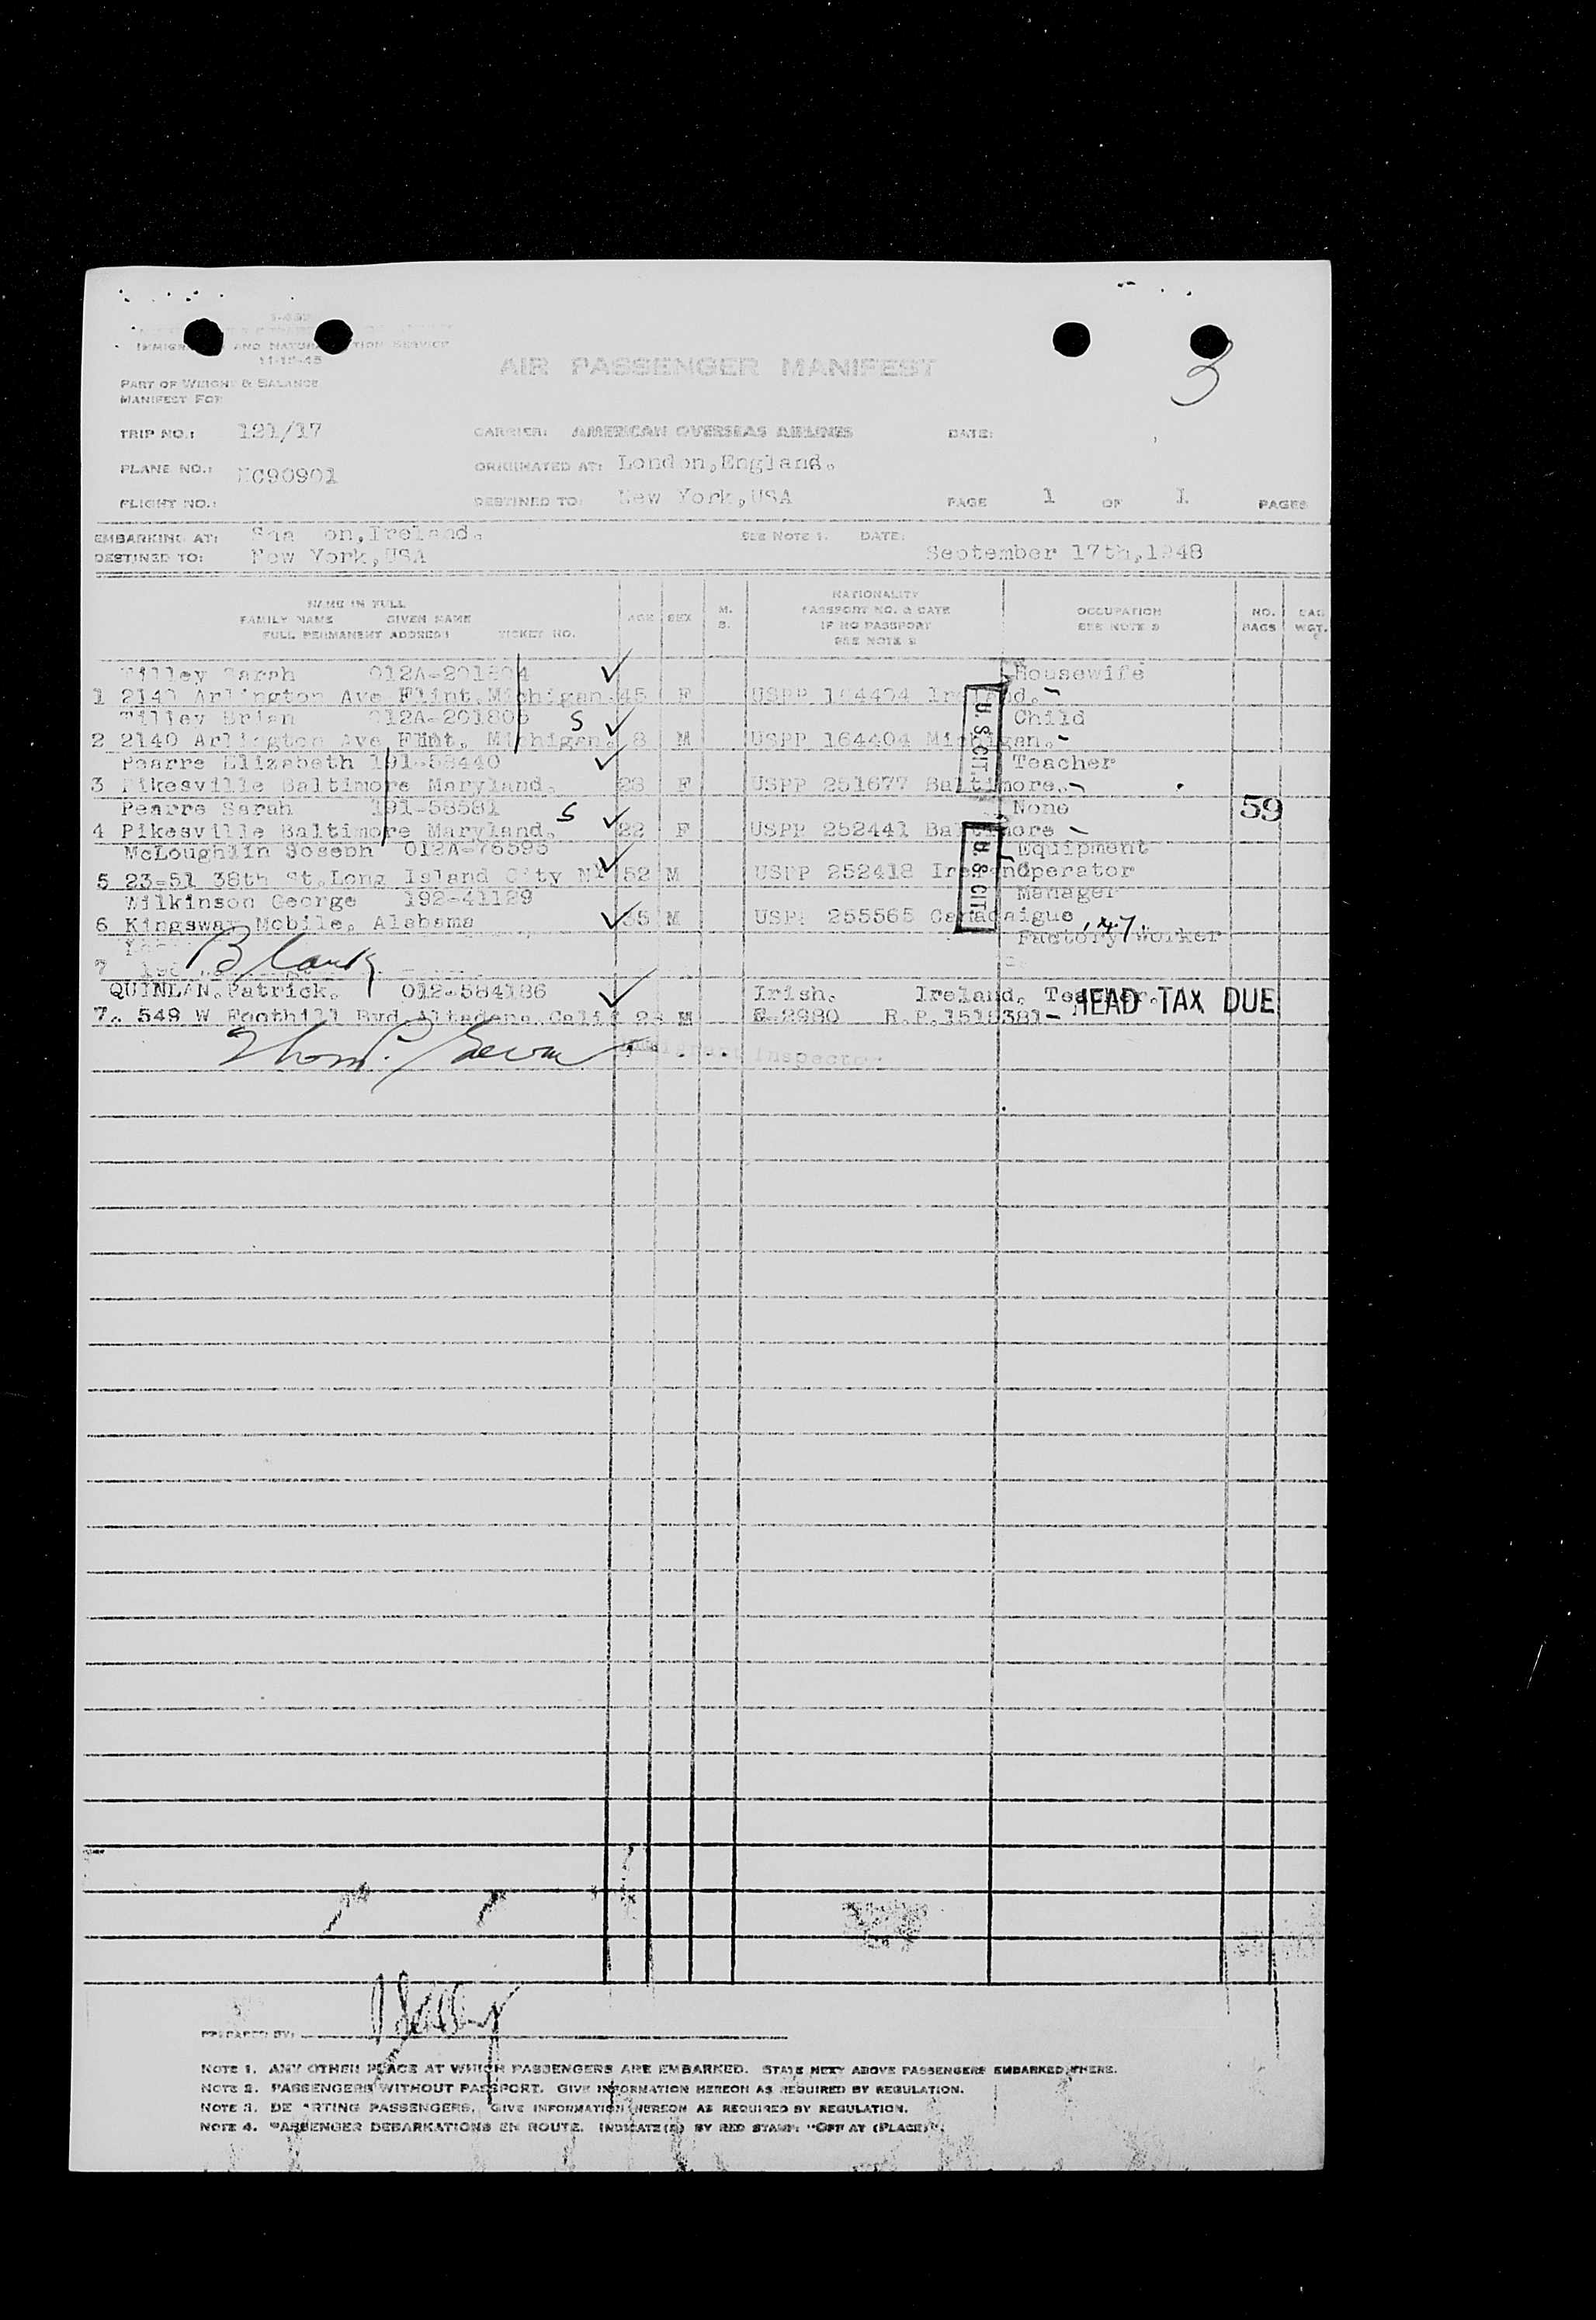 3
IMMIGR AND NATUR TION SERVICE
11-15-45
AIR PASSENGER MANIFEST
PART OF WEIGHT & BALANCE
MANIFEST FOR
TRIP NO.: 121/17 CARRIER: AMERICAN OVERSEAS AIRLINES DATE:
PLANE NO.: NC90901 ORIGINATED AT: London,England.
FLIGHT NO.: DESTINED TO: New York,USA PAGE 1 OF 1 PAGES
EMBARKING AT: Sha on,Ireland. SEE NOTE 1. DATE:
DESTINED TO: New York,USA September 17th,1948
NAME IN FULL
FAMILY NAME GIVEN NAME
FULL PERMANENT ADDRESS TICKET NO.
AGE SEX M.
S.
NATIONALITY
PASSPORT NO. & DATE
IF NO PASSPORT
SEE NOTE 2
OCCUPATION
SEE NOTE 3
NO.
BAGS
BAG
WGT.
Tilley Sarah 012A-201804 Housewife
1 2140 Arlington Ave Flint.Michigan. 45 F USPP 164404 Ireland.
Tilley Brian 012A-201805 S Child
2 2140 Arlington Ave Flint. Michigan. 8 M USPP 164404 Michigan.
Pearre Elizabeth 191-58440 Teacher
3 Pikesville Baltimore Maryland. 23 F USPP 251677 Baltimore.
Pearre Sarah 191-58581 S None 59
4 Pikesville Baltimore Maryland. 22 F USPP 252441 Baltimore
McLoughlin Joseph 012A-76595 Equipment
5 23-51 38th St.Long Island City NY 52 M USPP 252418 Ireland Operator
Wilkinson George 192-41129 Manager
6 Kingsway Mobile. Alabama 35 M USPP 255565 Canadaigue
U. S. CIT.
U. S. CIT.
Factory Worker
7 Blank
QUINLAN.Patrick. 012-584186 Irish. Ireland. Teacher.
7. 549 W Foothill Bvd.Altadena.Calif M 2980 R.P.1518381-
HEAD TAX DUE
Immigrant Inspector
PREPARED BY:
NOTE 1. ANY OTHER PLACE AT WHICH PASSENGERS ARE EMBARKED. STATE NEXT ABOVE PASSENGERS EMBARKED THERE.
NOTE 2. PASSENGERS WITHOUT PASSPORT. GIVE INFORMATION HEREON AS REQUIRED BY REGULATION.
NOTE 3. DE RTING PASSENGERS. GIVE INFORMATION HEREON AS REQUIRED BY REGULATION.
NOTE 4. PASSENGER DEBARKATIONS EN ROUTE. INDICATE(D) BY RED STAMP: "OFF AT (PLACE)".